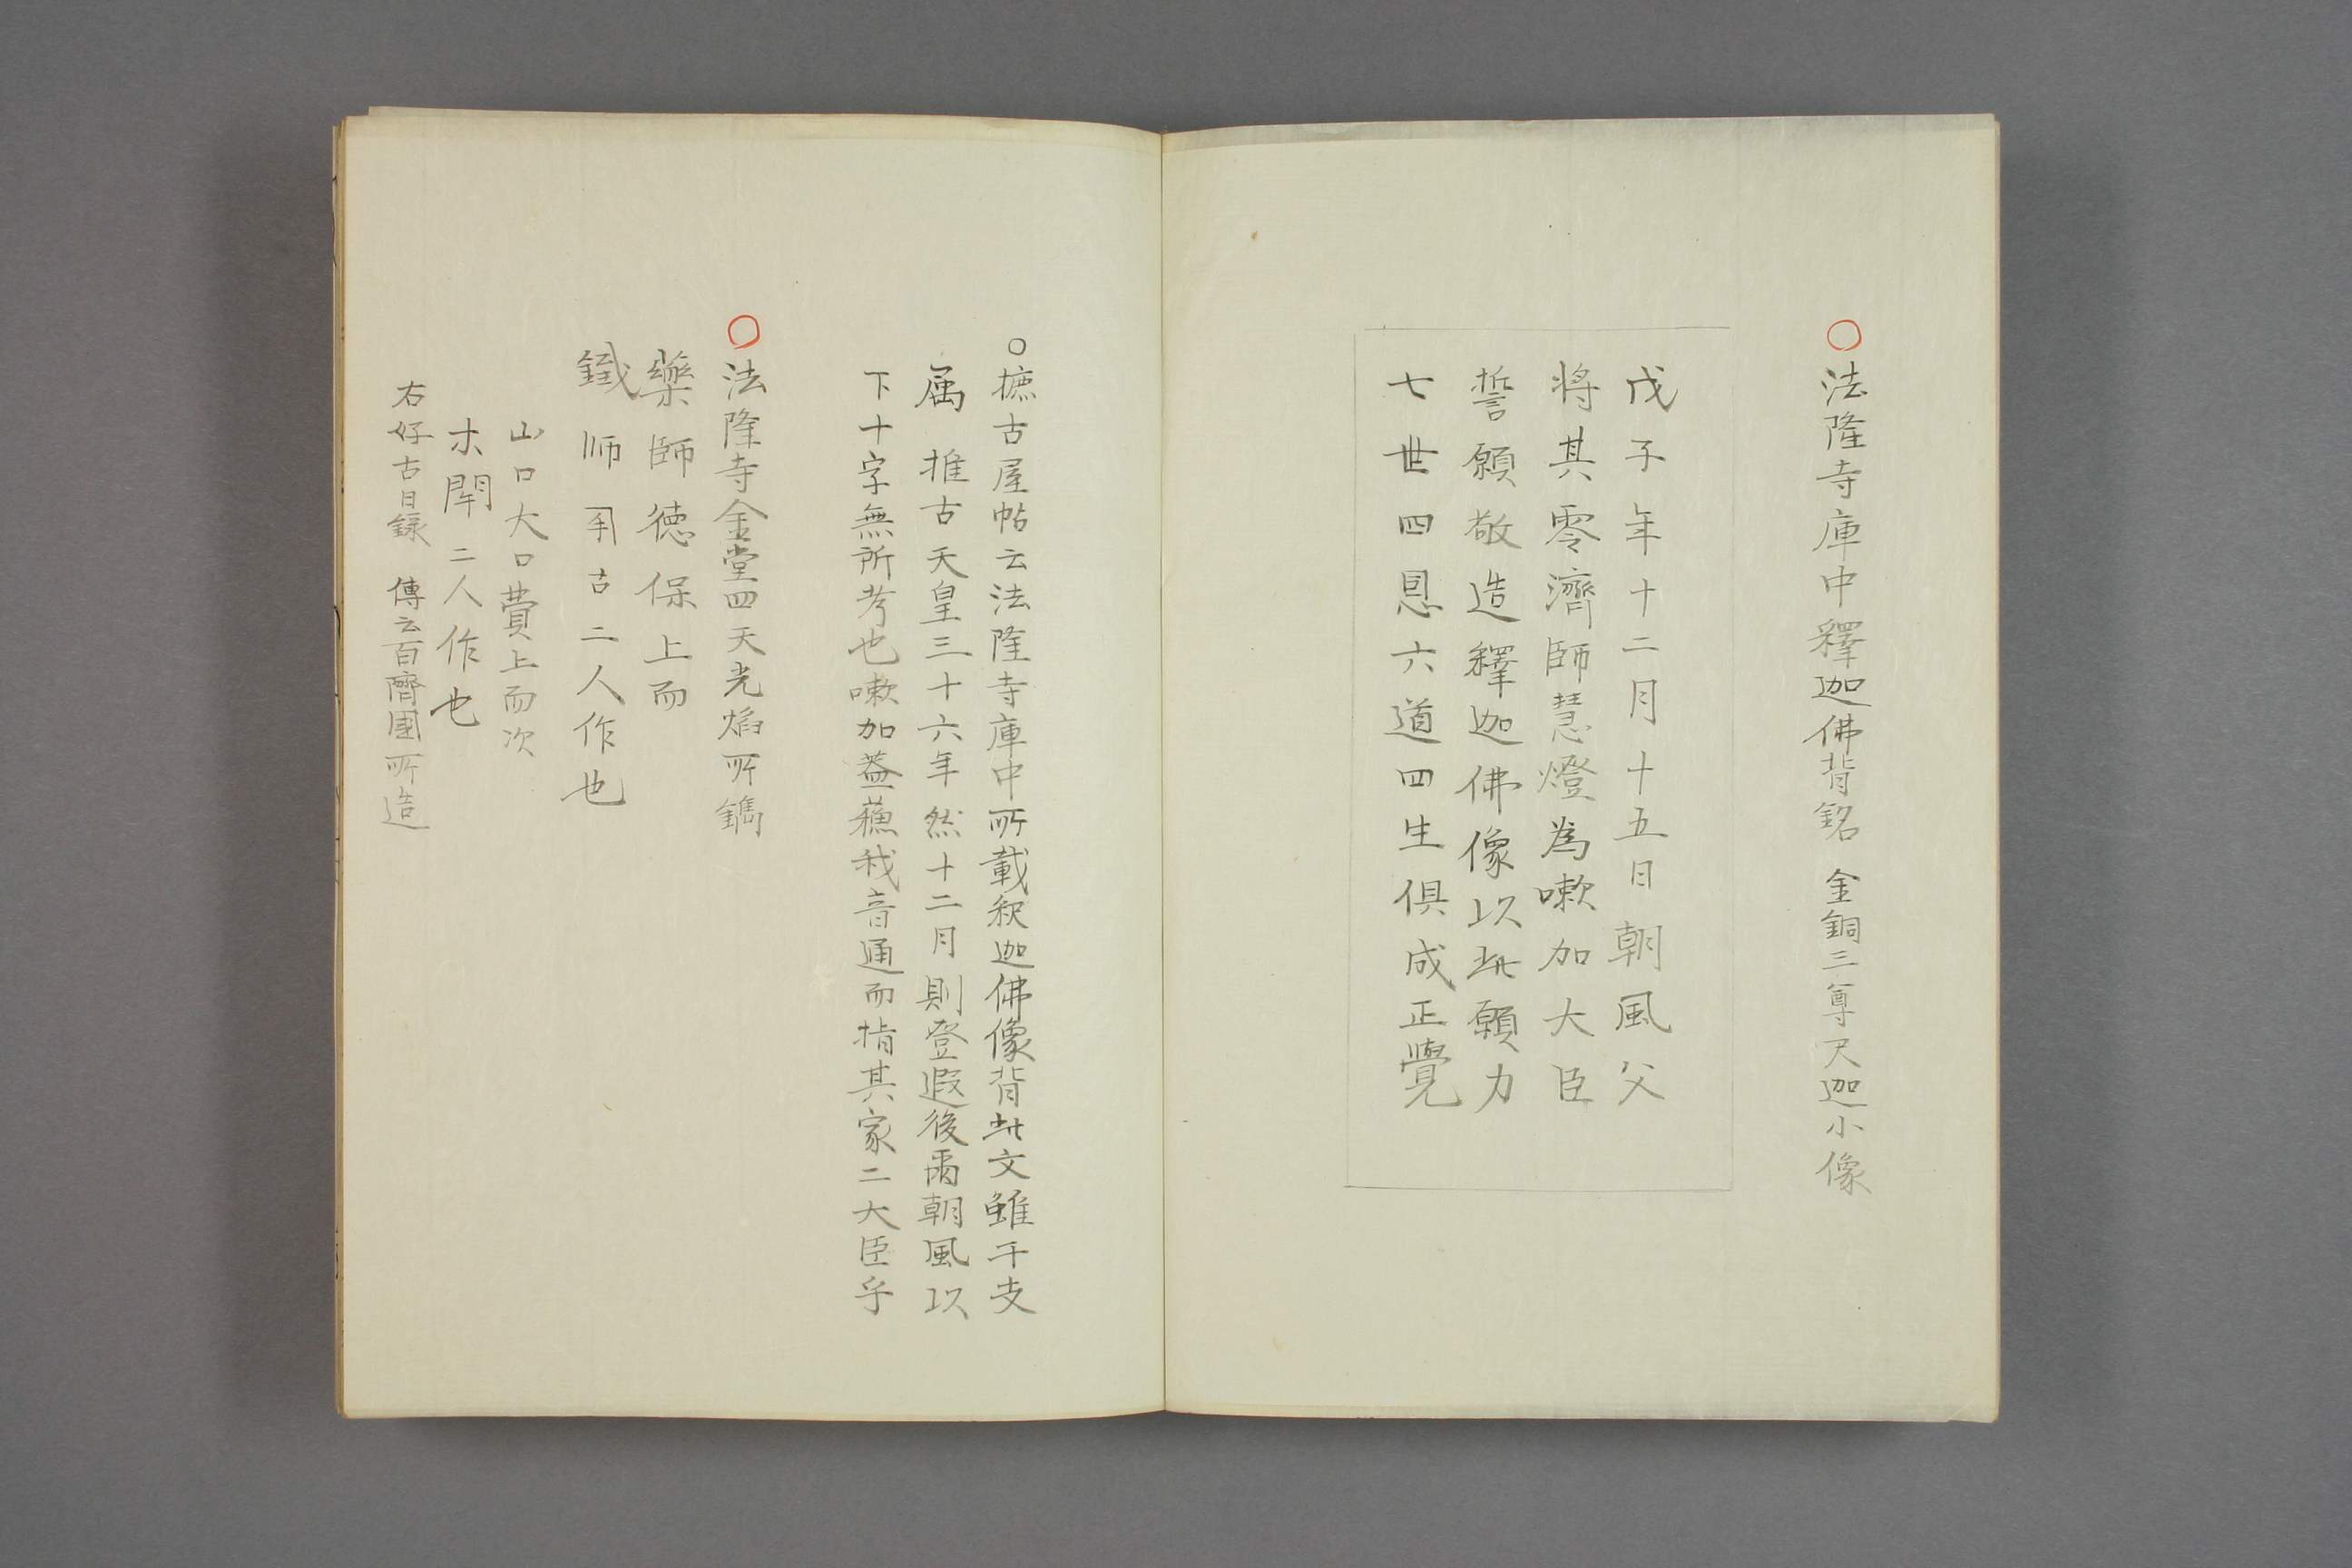 ○法隆寺庫中釋迦佛背銘 金銅三尊尺迦小像
戊子年十二月十五日朝風父
將其零濟師慧燈為嗽加大臣
誓願敬造釋迦佛像以此願力
七世四恩六道四生俱成正覺
○摭古屋帖云法隆寺庫中所載釈迦佛像背此文雖干支
属 推古天皇三十六年然十二月則登遐後而朝風以
下十字無所考也嗽加蓋蘓我音通而指其家二大臣乎
○法隆寺金堂四天光焰所鐫
藥師徳保上而
鐵师𠩤古二人作也
山口大口費上而次
木閇二人作也
右好古日録 傳云百濟国所造